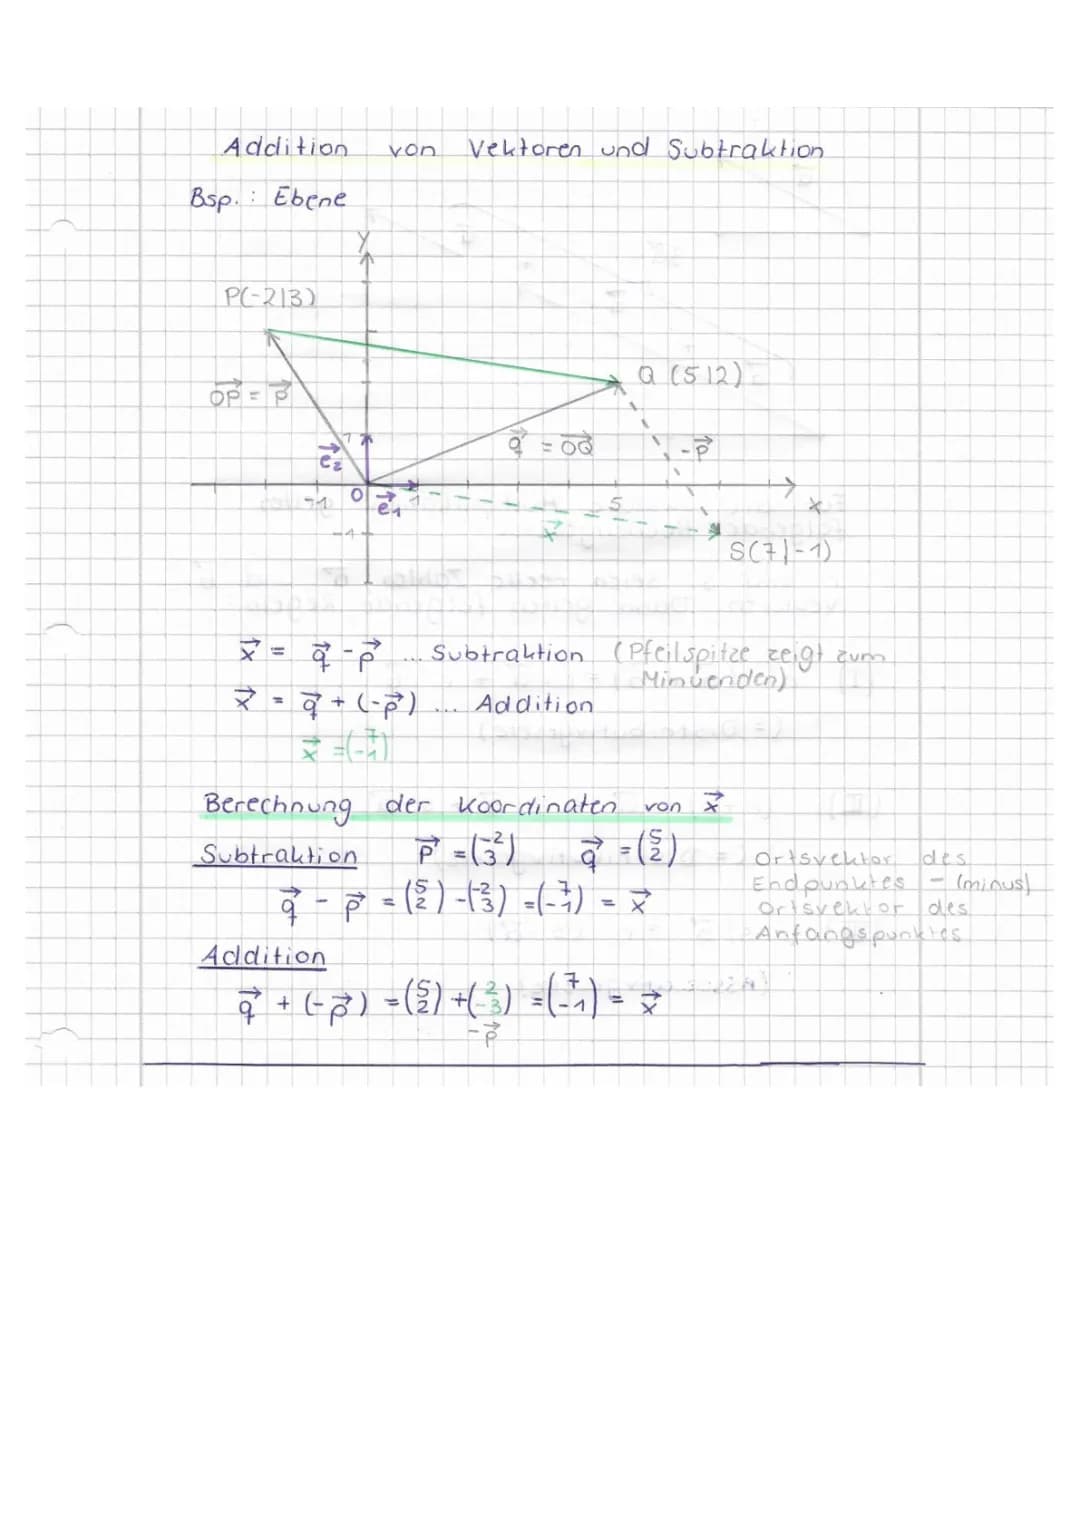 Addition von Vektoren und Subtraktion
Bsp.: Ebene
y
P(-2|3)
Q (5|2)
OP⃗ = p⃗
q⃗ = OQ⃗
-p⃗
1
e⃗₂
-1 0 e⃗₁ 1 5 x
x⃗
-1
S(7|-1)
x⃗ = q⃗ - p⃗ ... Subtraktion (Pfeilspitze zeigt zum
Minuenden)
x⃗ = q⃗ + (-p⃗) ... Addition
x⃗ = (7 -1)
Berechnung der Koordinaten von x⃗
Subtraktion p⃗ = (-2 3) q⃗ = (5 2)
q⃗ - p⃗ = (5 2) - (-2 3) = (7 -1) = x⃗
Ortsvektor des
Endpunktes - (minus)
Ortsvektor des
Anfangspunktes
Addition
q⃗ + (-p⃗) = (5 2) + (2 -3) = (7 -1) = x⃗
-p⃗